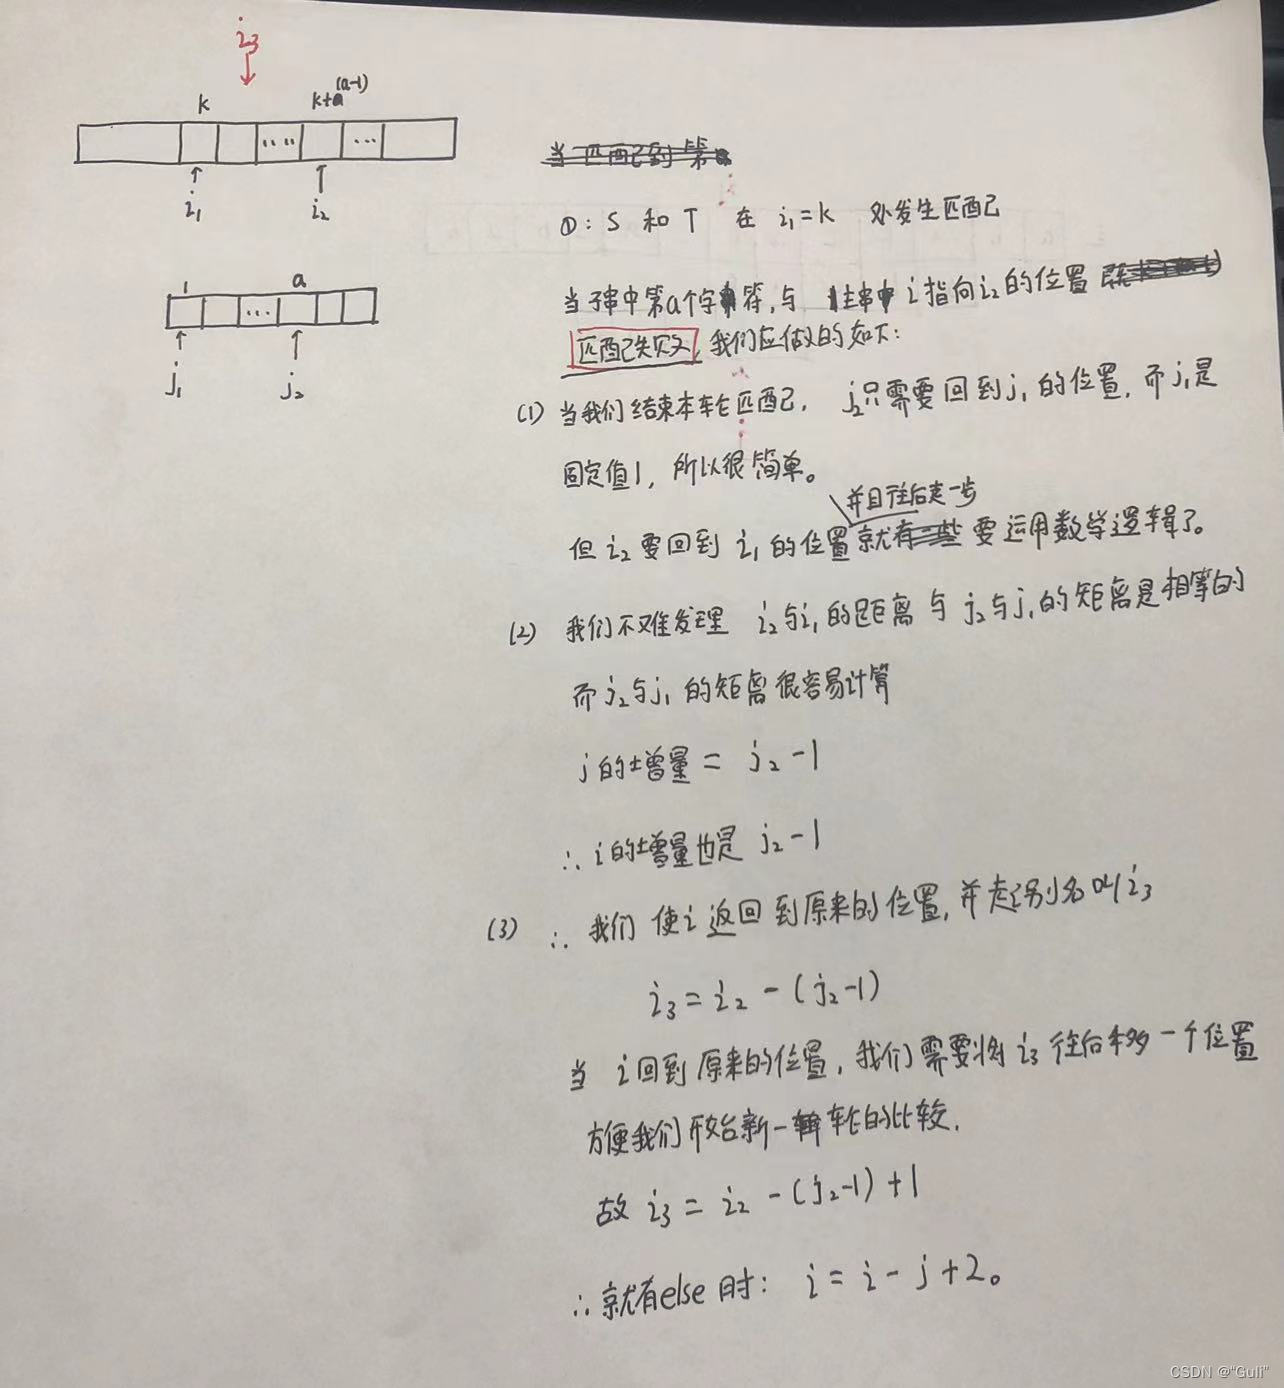 i3
k
k+a(a-1)
‥‥
…
i1
i2
1
a
…
j1
j2
当 匹配到 第
①: S 和 T 在 i1=k 处发生匹配
当子串中第a个字符,与 主串中 i指向i2的位置
匹配失败,我们应做的如下:
(1) 当我们结束本轮匹配, j2只需要回到j1的位置,而j1是
固定值1, 所以很简单。
并且往后走一步
但 i2 要回到 i1 的位置就有一些 要 运用数学逻辑了。
(2) 我们不难发现 i2与i1的距离 与 j2与j1的矩离是相等的
而 j2与j1 的矩离很容易计算
j的增量 = j2-1
∴ i的增量也是 j2-1
(3) ∴ 我们 使i返回到原来的位置,并起别名叫i3
i3 = i2 - (j2-1)
当 i回到原来的位置,我们需要将 i3 往后移一个位置
方便我们开始新一轮的比较.
故 i3 = i2 - (j2-1) + 1
∴ 就有else时: i = i - j + 2。
CSDN @"Guli"